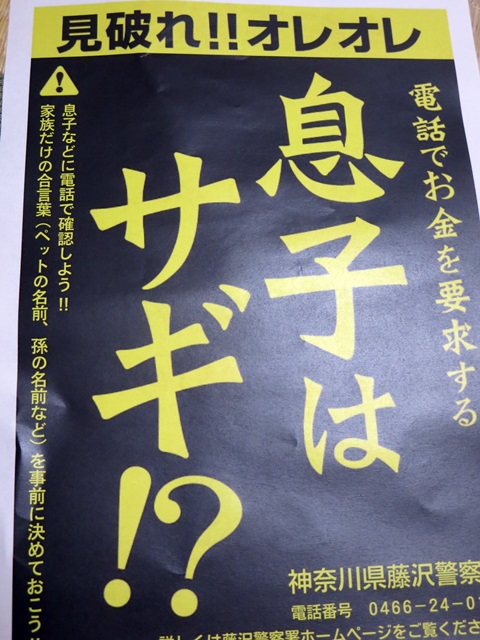 見破れ!!オレオレ
電話でお金を要求する
息子は
サギ!?
息子などに電話で確認しよう!!
家族だけの合言葉(ペットの名前、孫の名前など)を事前に決めておこう
神奈川県藤沢警察
電話番号 0466-24-01
詳しくは藤沢警察署ホームページをご覧くださ